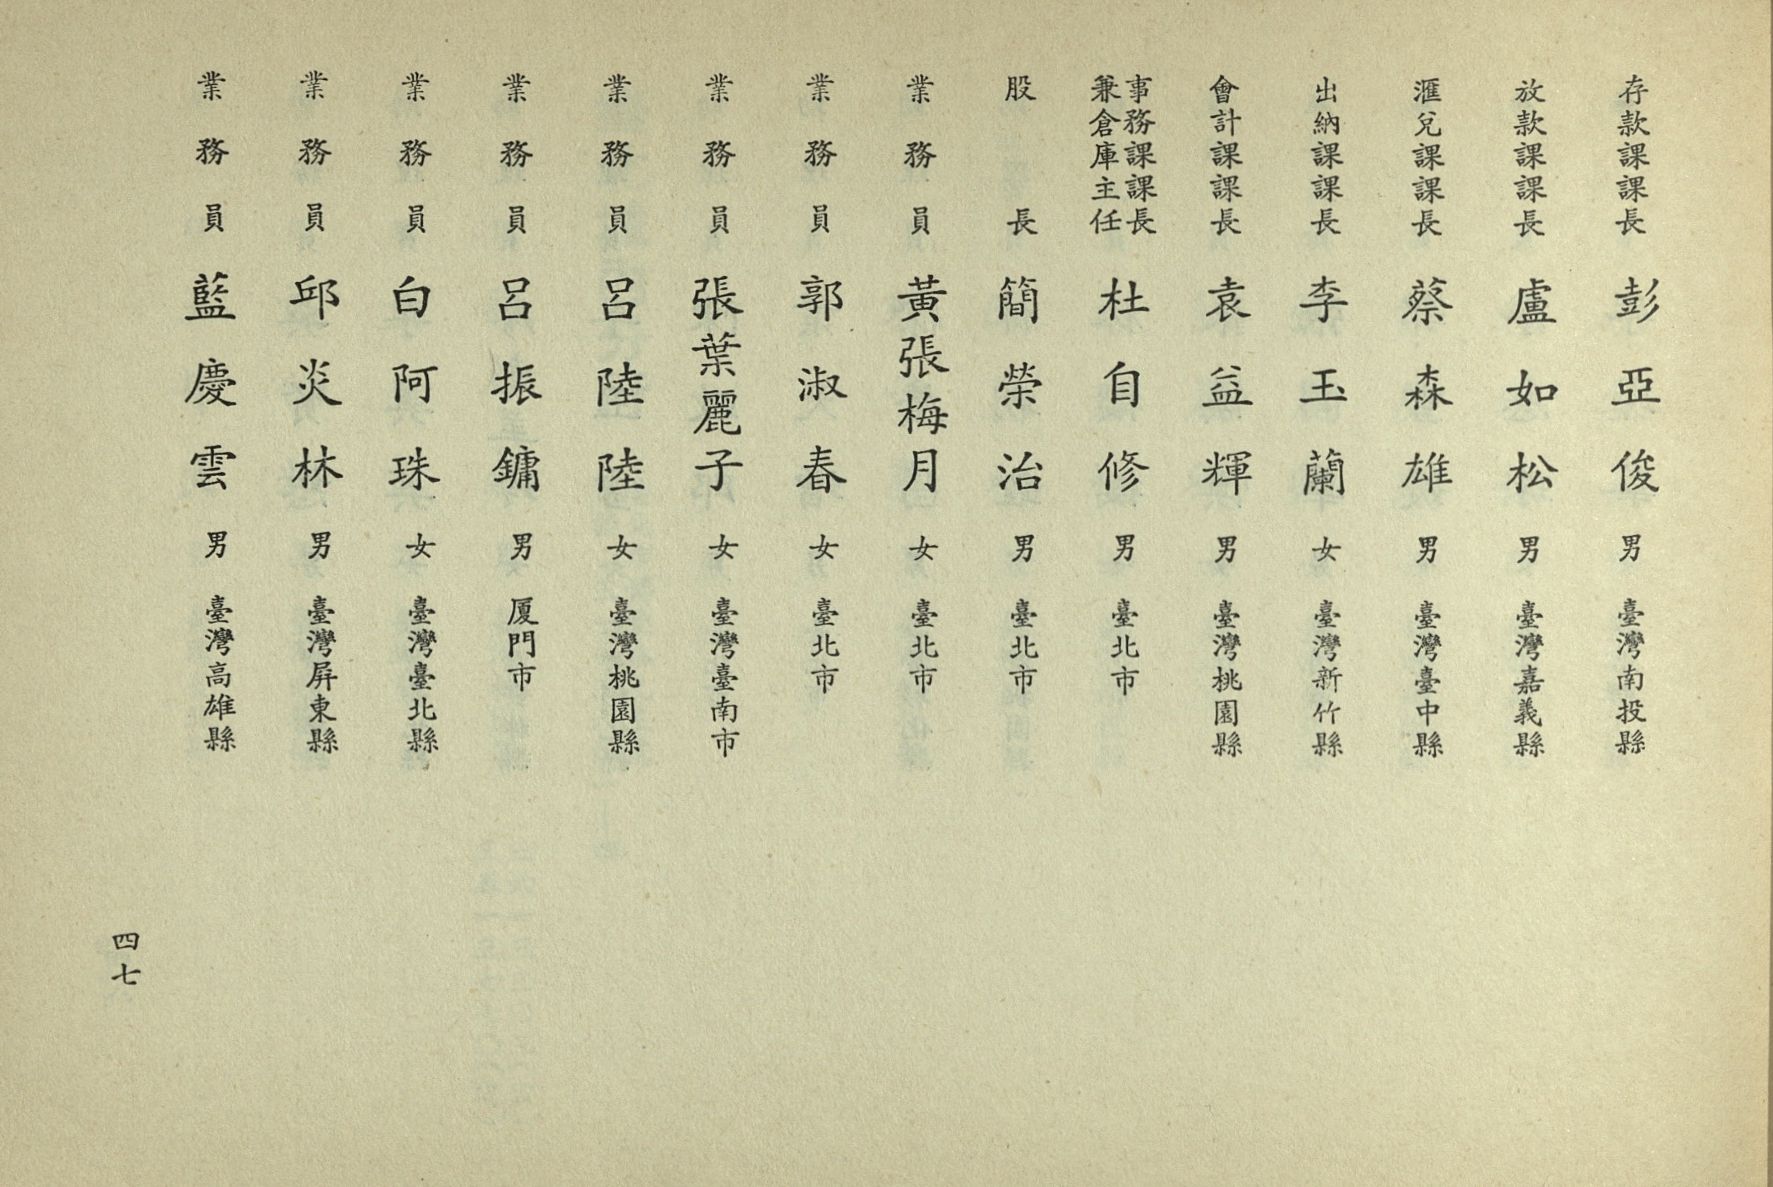 存款課課長　彭亞俊　男　臺灣南投縣
放款課課長　盧如松　男　臺灣嘉義縣
滙兌課課長　蔡森雄　男　臺灣臺中縣
出納課課長　李玉蘭　女　臺灣新竹縣
會計課課長　袁益輝　男　臺灣桃園縣
事務課課長
兼倉庫主任　杜自修　男　臺北市
股長　簡榮治　男　臺北市
業務員　黃張梅月　女　臺北市
業務員　郭淑春　女　臺北市
業務員　張葉麗子　女　臺灣臺南市
業務員　呂陸陸　女　臺灣桃園縣
業務員　呂振鏞　男　厦門市
業務員　白阿珠　女　臺灣臺北縣
業務員　邱炎林　男　臺灣屏東縣
業務員　藍慶雲　男　臺灣高雄縣
四七